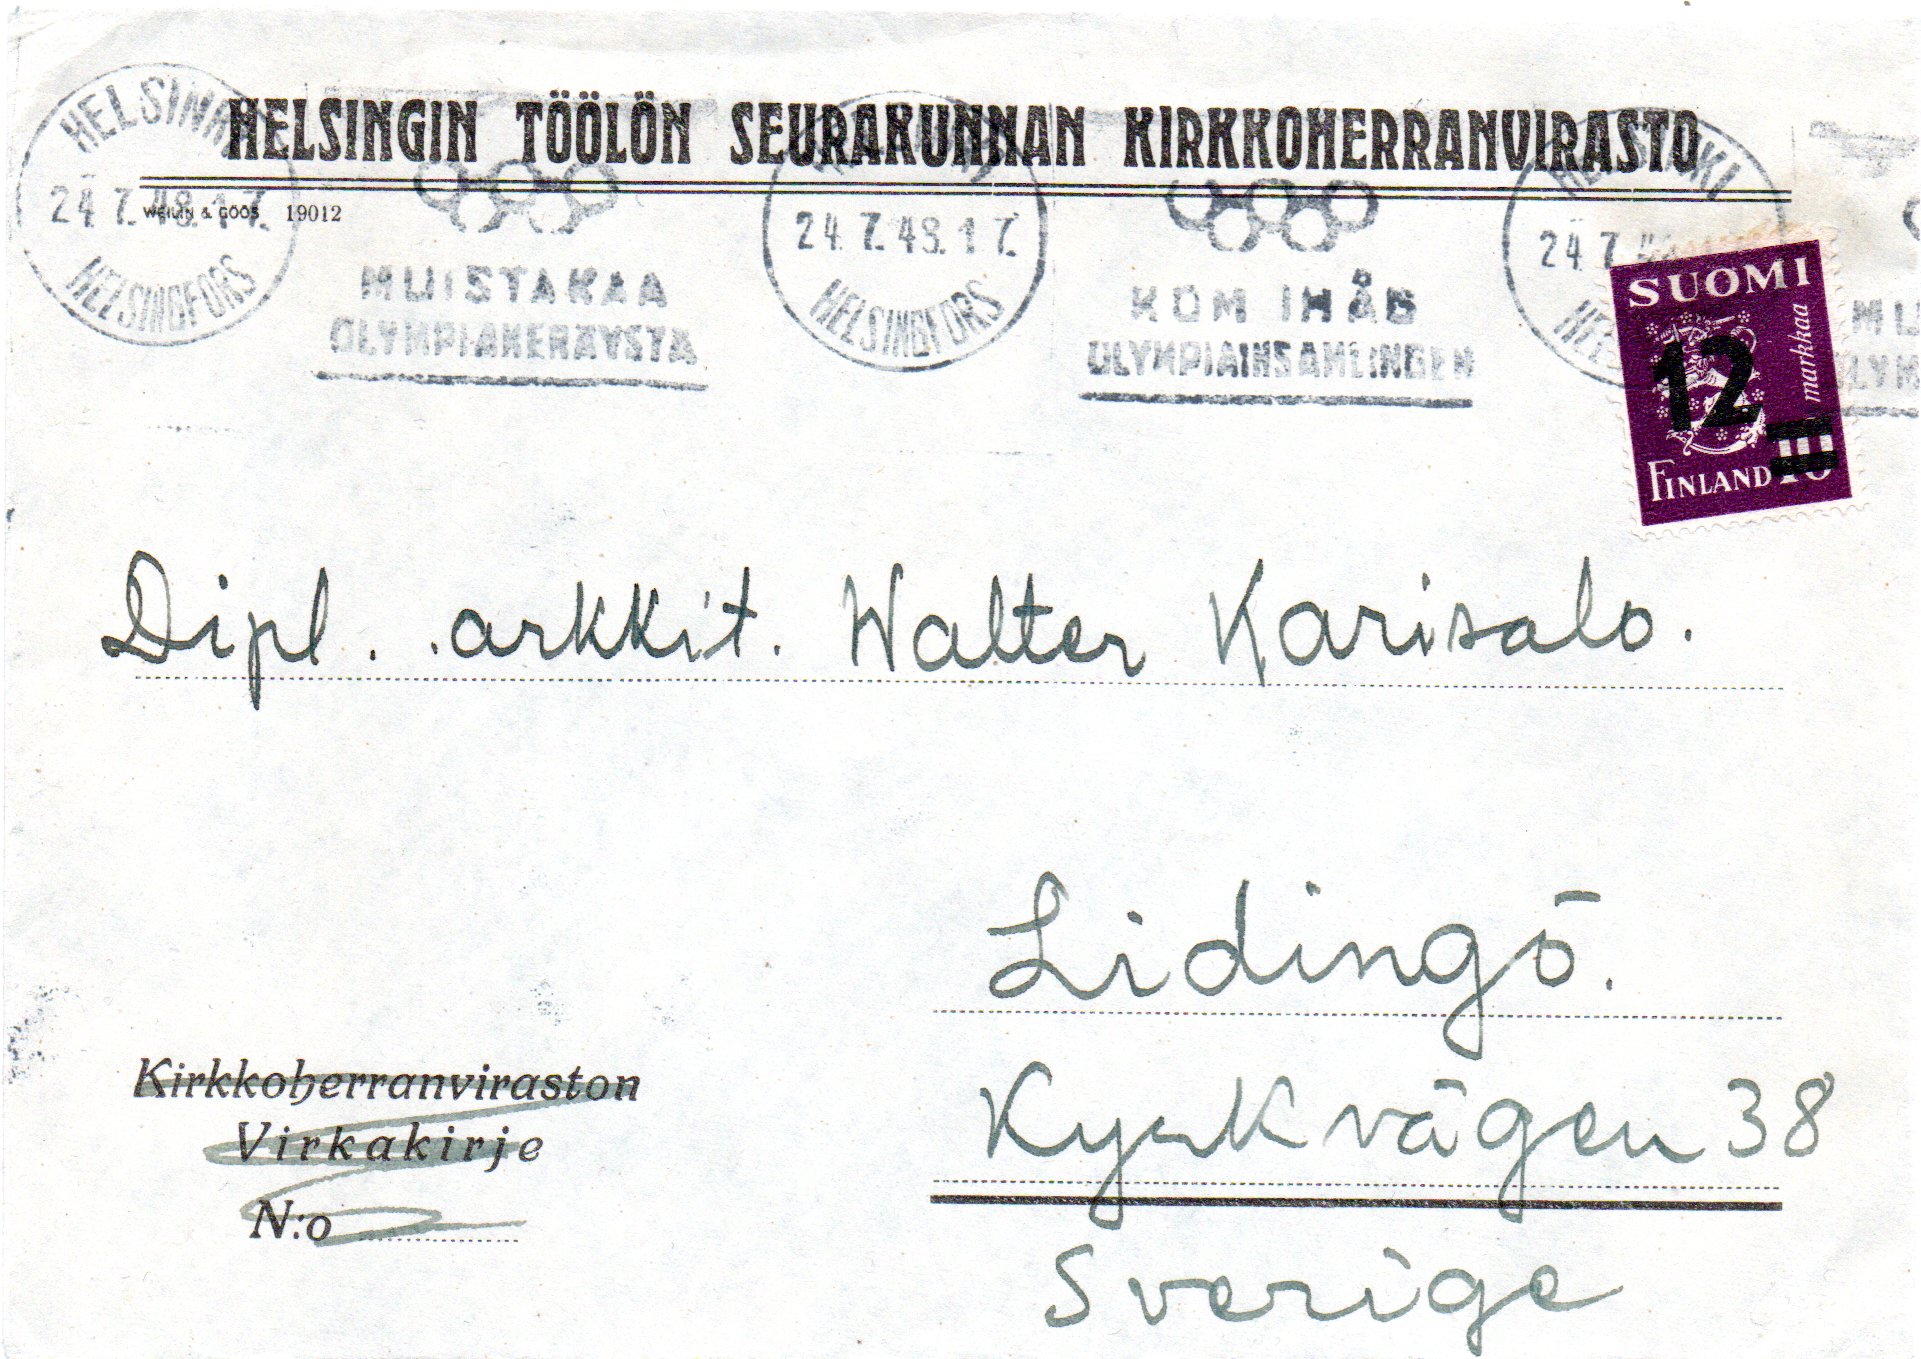 HELSINGIN TÖÖLÖN SEURAKUNNAN KIRKKOHERRANVIRASTO
WEILIN & GÖÖS 19012
HELSINKI
24.7.48.17.
HELSINGFORS
MUISTAKAA
OLYMPIAKERÄYSTÄ
HELSINKI
24.7.48.17.
HELSINGFORS
KOM IHÅG
OLYMPIAINSAMLINGEN
HELSINKI
24.7.48
HELS
MU
OLYM
SUOMI
markkaa
12
FINLAND 10
Dipl. arkkit. Walter Karisalo.
Lidingö.
Kyrkvägen 38
Sverige
Kirkkoherranviraston
Virkakirje
N:o